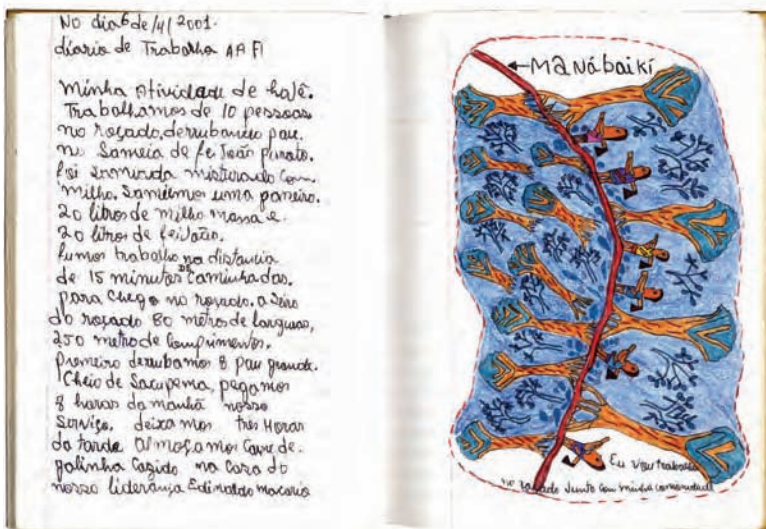 No dia 6 de /4/ 2001.
diário de Trabalho AAFI
Minha Atividade de hojê.
Trabalhamos de 10 pessoas
no roçado, derrubando pau.
no Sameia de feijoão
foi misturado com
milho. Samiemos uma paneiro.
20 litros de milho massa e
20 litros de feijoão.
fumos trabalho na distancia
de 15 minutos de caminhadas.
para chego no roçado. a seiro
do roçado 80 metro de larguras,
250 metro de comprimentos.
Primeiro derrubamos 8 pau grande.
Cheio de Sacupema, pegamos
8 horas da manhã nosso
Serviço. deixamos três Horas
da tarde Almoçamos Carne de
galinha Cozido na Casa do
nosso liderança Edinaldo macario
←MANÁBAIKÍ
Eu vou trabalha
no roçado Junto com minha comunidade